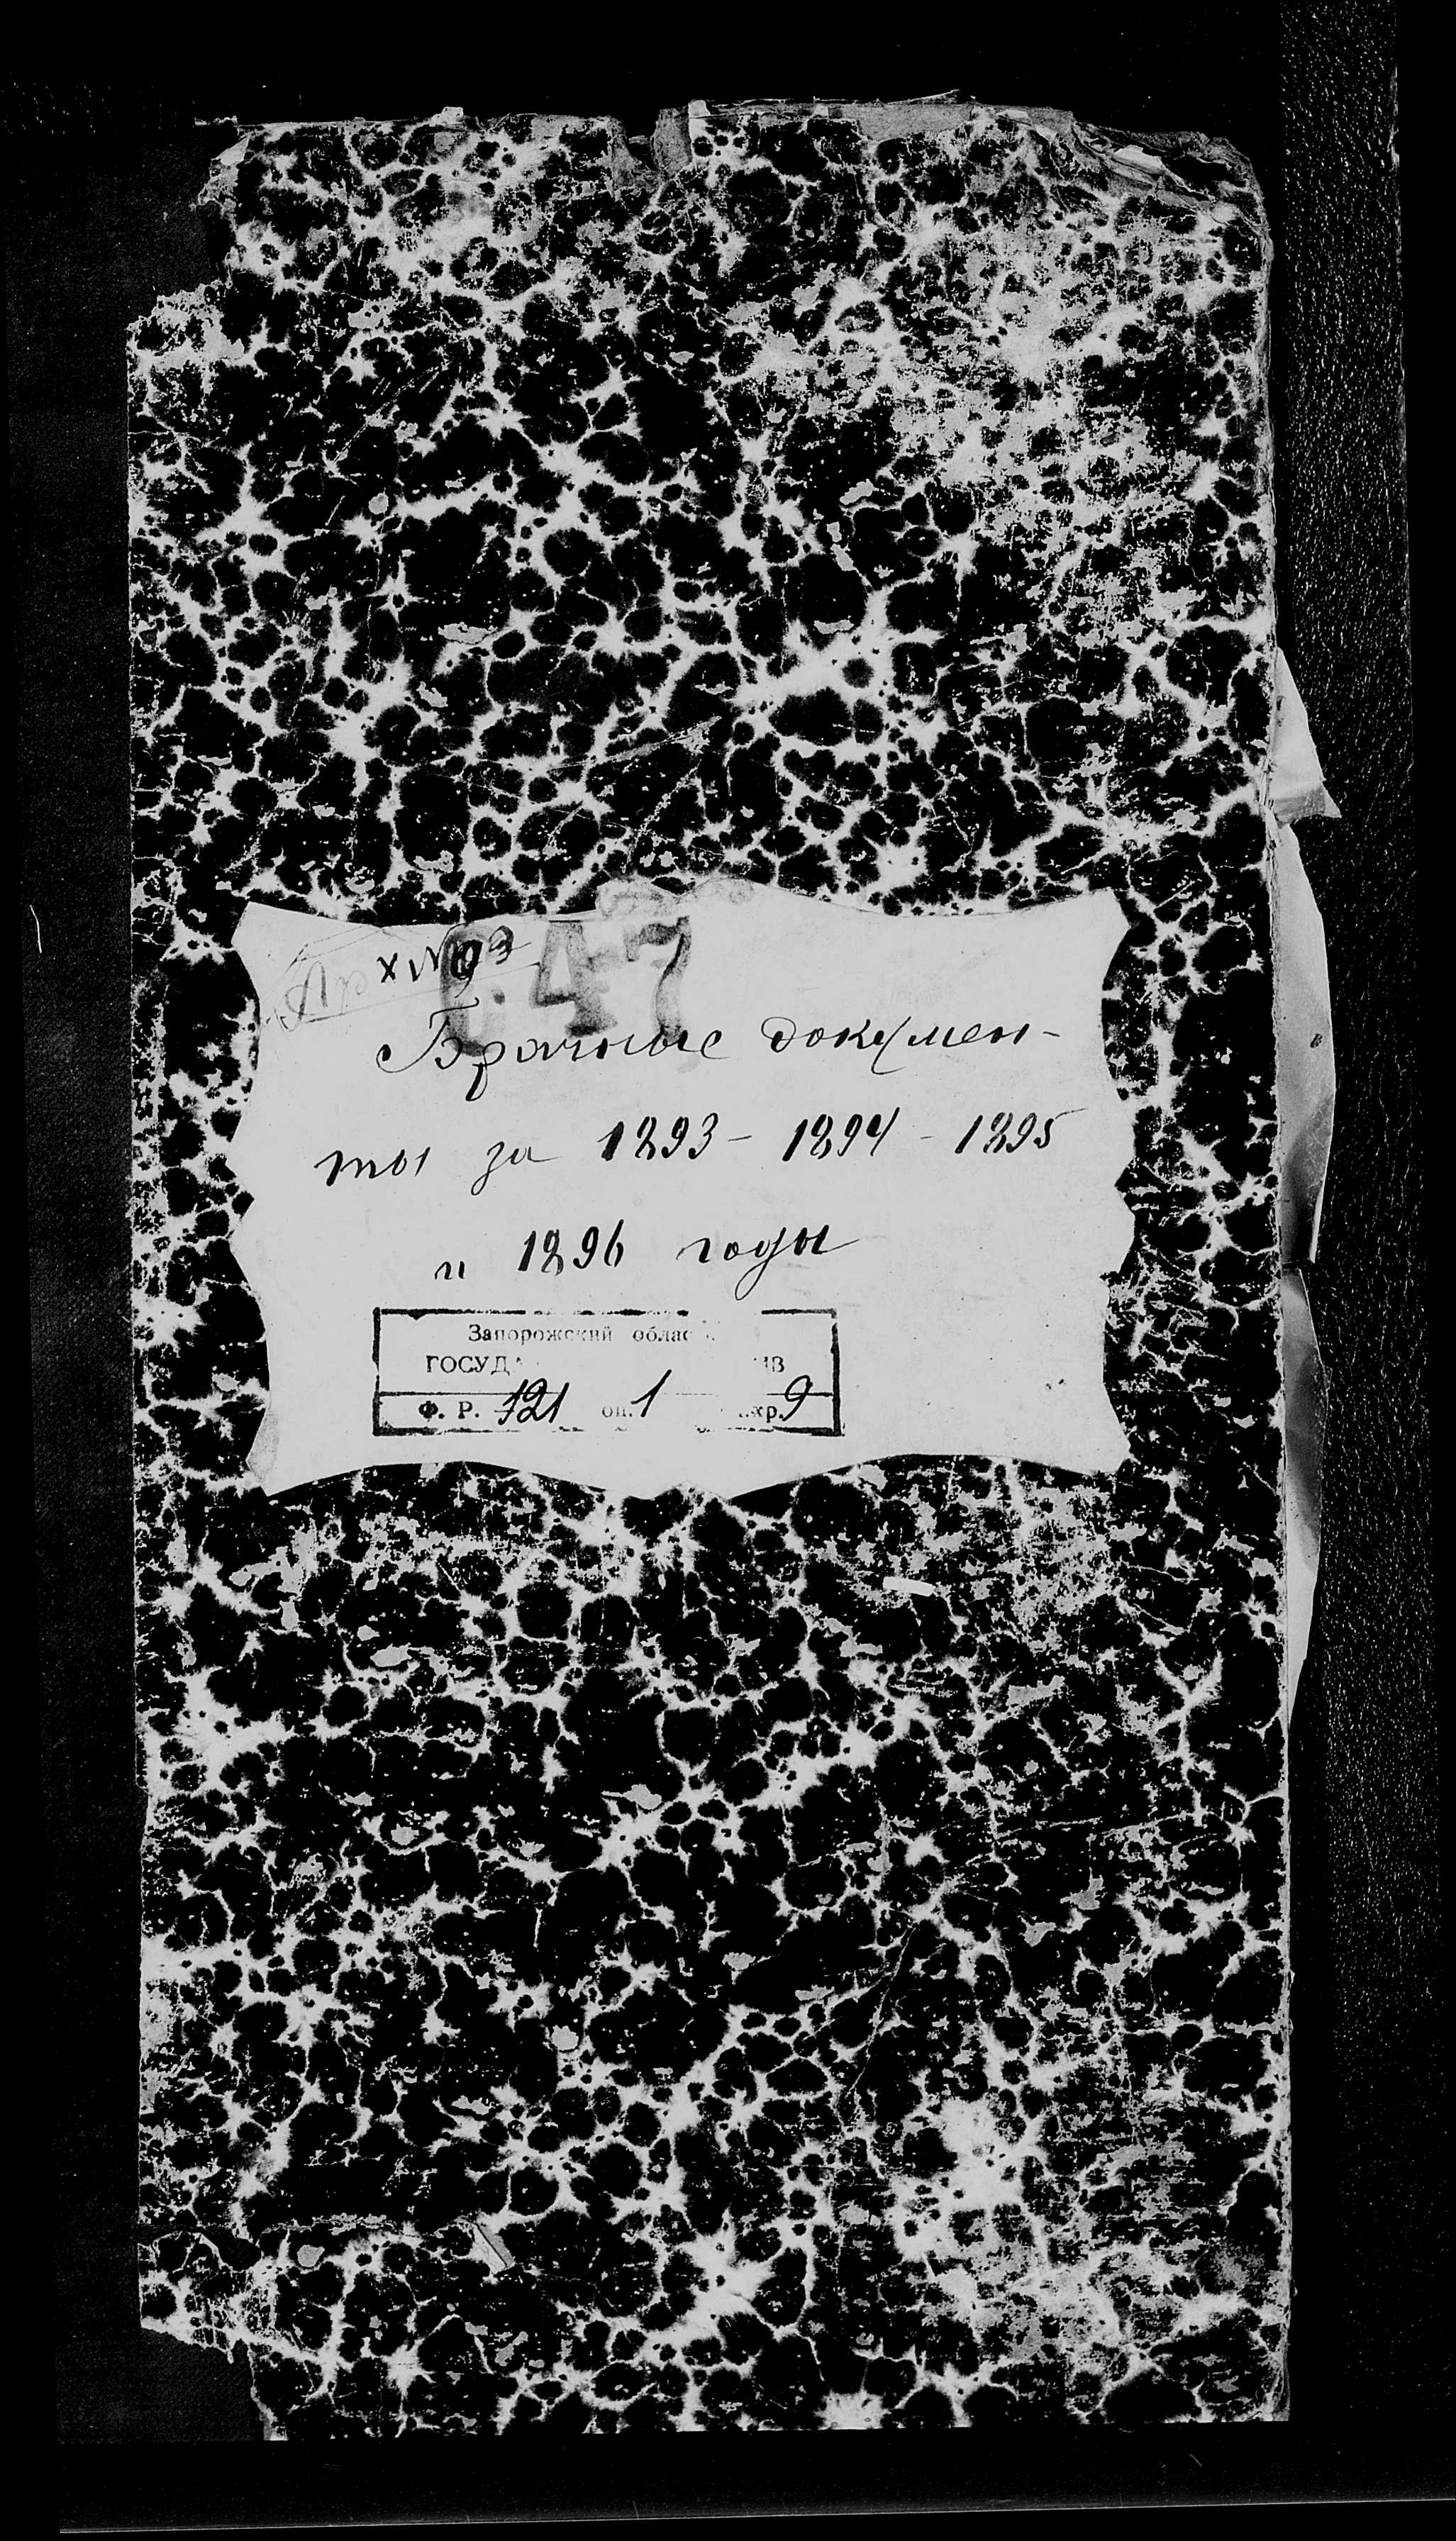 Арх №93
647
Брачные докумен-
ты за 1893 - 1894 - 1895
и 1896 годы
Запорожский облас
ГОСУД ИВ
Ф. Р. 121 оп. 1 хр. 9